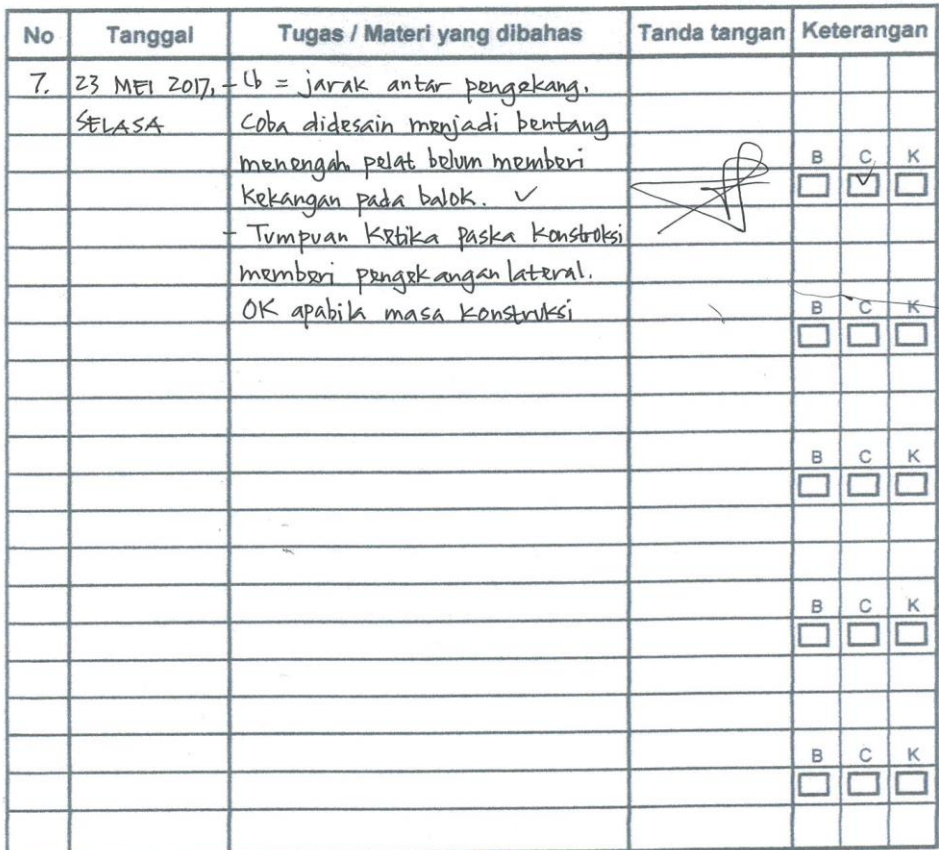 No Tanggal Tugas / Materi yang dibahas Tanda tangan Keterangan
7. 23 MEI 2017, - Lb = jarak antar pengekang.
SELASA Coba didesain menjadi bentang
menengah pelat belum memberi B C K
Kekangan pada balok. ✓
- Tumpuan Ketika paska konstruksi
memberi pengekangan lateral.
OK apabila masa konstruksi B C K
B C K
B C K
B C K